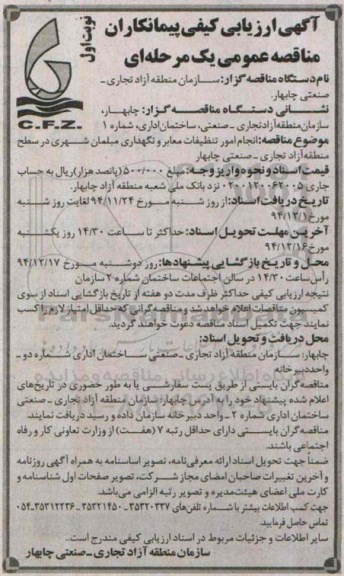 نوبت اول
C.F.Z.
آگهی ارزیابی کیفی پیمانکاران
مناقصه عمومی یک مرحله‌ای
نام دستگاه مناقصه گزار: سازمان منطقه آزاد تجاری -
صنعتی چابهار.
نشانی دستگاه مناقصه گزار: چابهار،
سازمان منطقه آزاد تجاری - صنعتی، ساختمان اداری، شماره ۱
موضوع مناقصه: انجام امور تنظیفات معابر و نگهداری مبلمان شهری در سطح
منطقه آزاد تجاری - صنعتی چابهار
قیمت اسناد و نحوه واریز وجه: مبلغ ۵۰۰/۰۰۰ (پانصد هزار) ریال به حساب
جاری نزد بانک ملی شعبه منطقه آزاد چابهار.
تاریخ دریافت اسناد: از روز شنبه مورخ ۹۴/۱۱/۲۴ لغایت روز شنبه
مورخ ۹۴/۱۲/۱
آخرین مهلت تحویل اسناد: حداکثر تا ساعت ۱۴/۳۰ روز یکشنبه
مورخ ۹۴/۱۲/۱۶
محل و تاریخ بازگشایی پیشنهادها: روز دوشنبه مورخ ۹۴/۱۲/۱۷
رأس ساعت ۱۴/۳۰ در سالن اجتماعات ساختمان شماره ۲ سازمان
نتیجه ارزیابی کیفی حداکثر ظرف مدت دو هفته از تاریخ بازگشایی اسناد از سوی
کمیسیون مناقصات اعلام خواهد شد و مناقصه گرانی که حداقل امتیاز لازم را کسب
نمایند جهت تکمیل اسناد مناقصه دعوت خواهند گردید.
محل دریافت و تحویل اسناد:
چابهار: سازمان منطقه آزاد تجاری - صنعتی ساختمان اداری شماره دو -
واحد دبیرخانه
مناقصه گران بایستی از طریق پست سفارشی یا به طور حضوری در تاریخ‌های
اعلام شده پیشنهاد خود را به آدرس چابهار: سازمان منطقه آزاد تجاری - صنعتی
ساختمان اداری شماره ۲ - واحد دبیرخانه سازمان داده و رسید دریافت نمایند.
مناقصه گران بایستی دارای حداقل رتبه ۷ (هفت) از وزارت تعاونی کار و رفاه
اجتماعی باشند.
ضمناً جهت تحویل اسناد ارائه معرفی‌نامه، تصویر اساسنامه به همراه آگهی روزنامه
و آخرین تغییرات صاحبان امضای مجاز شرکت، تصویر صفحات اول شناسنامه و
کارت ملی اعضای هیئت‌مدیره و تصویر رتبه الزامی می‌باشد.
جهت کسب اطلاعات بیشتر با شماره تلفن‌های ۳۵۳۲۰۳۳۷ - ۳۵۳۲۱۴۵۰ - ۰۵۴-۳۵۳۱۲۲۳۶
تماس حاصل فرمایید.
سایر اطلاعات و جزئیات مربوط در اسناد ارزیابی کیفی مندرج است.
سازمان منطقه آزاد تجاری - صنعتی چابهار